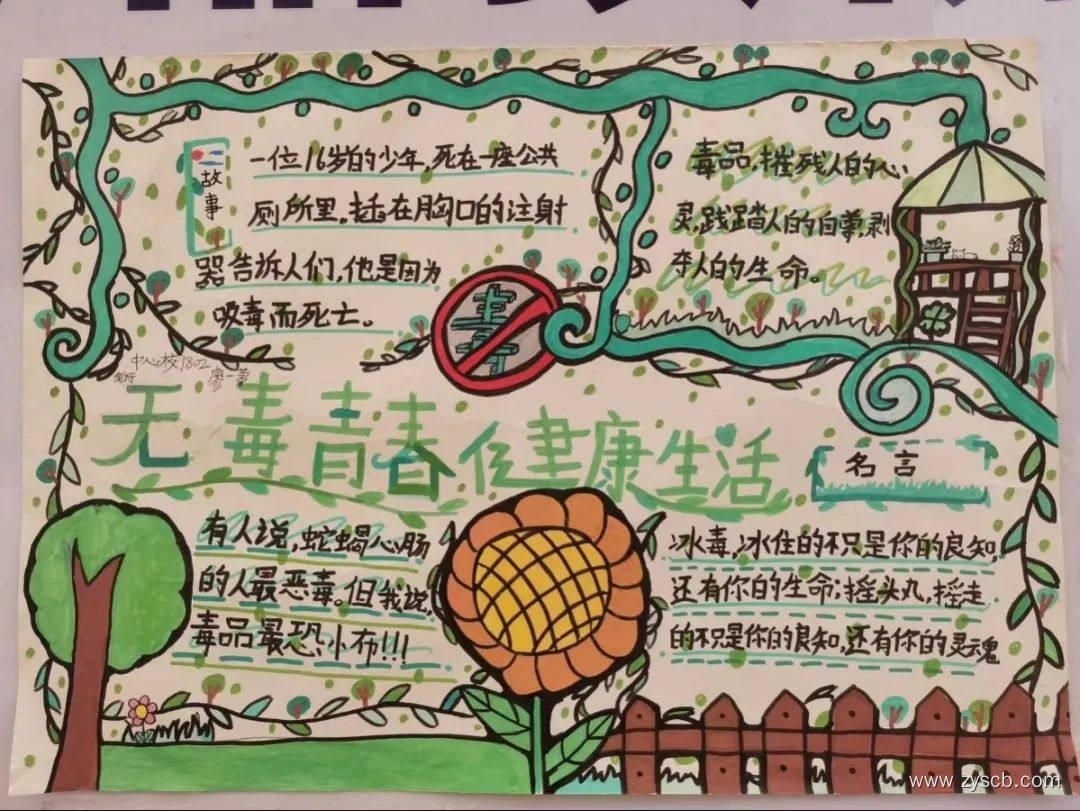 故事
一位16岁的少年,死在一座公共
厕所里,插在胸口的注射
器告诉人们,他是因为
吸毒而死亡。
毒品,摧残人的心
灵,践踏人的自尊,剥
夺人的生命。
毒
中心校1802
廖一
无毒青春健康生活
名言
有人说,蛇蝎心肠
的人最恶毒。但我说,
毒品最恐小布!!!
冰毒,冰住的不只是你的良知,
还有你的生命;摇头丸,摇走
的不只是你的良知,还有你的灵魂
www.zyscb.com